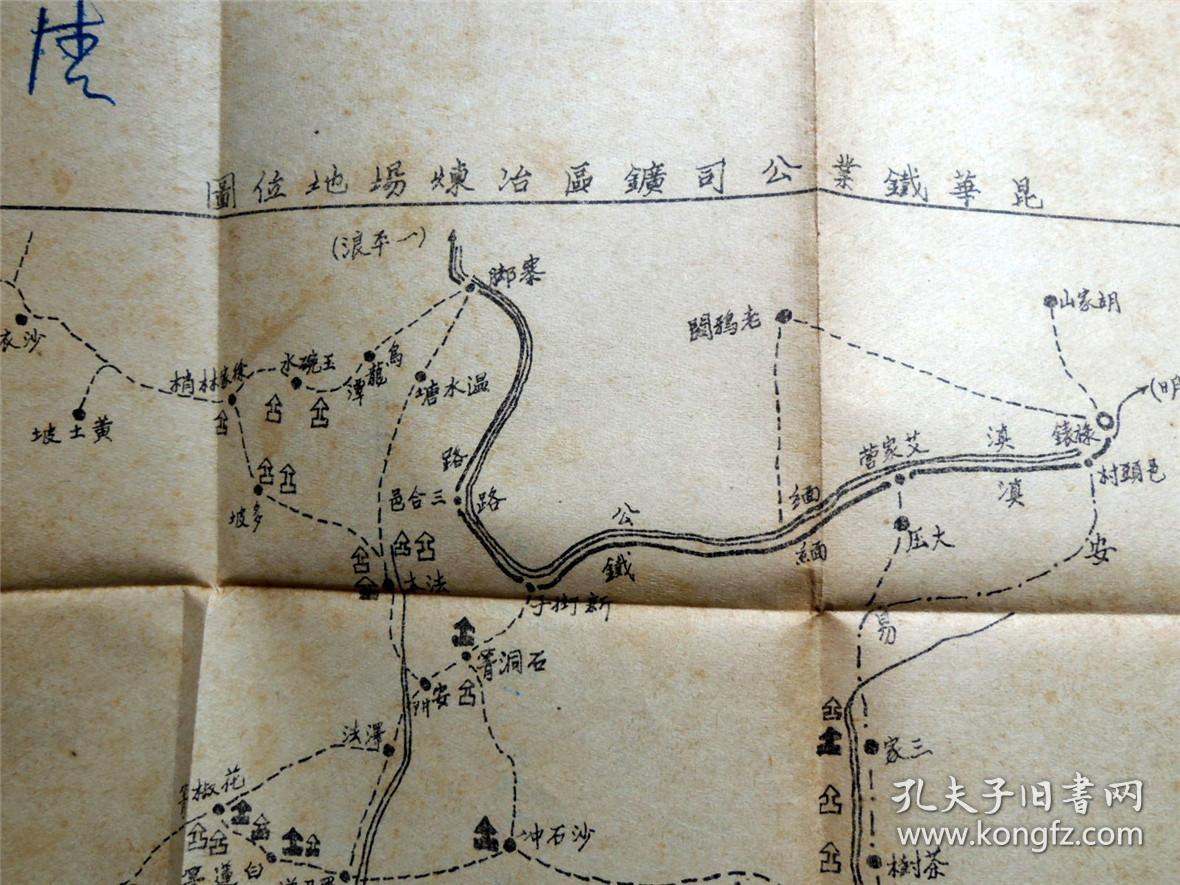 昆華鐵業公司鑛區冶煉場地位圖
(一平浪)
寨脚
老鴉關
胡家山
沙衣
徐家林梢
玉碗水
烏龍潭
温水塘
黄土坡
祿脿
邑頭村
艾家營
滇
滇
緬
緬
公
鐵
路
路
三合邑
多坡
大压
安
易
法本
新街子
石洞箐
澤法
三家
花椒箐
沙石冲
茶樹
白蓮
孔夫子旧書网
www.kongfz.com